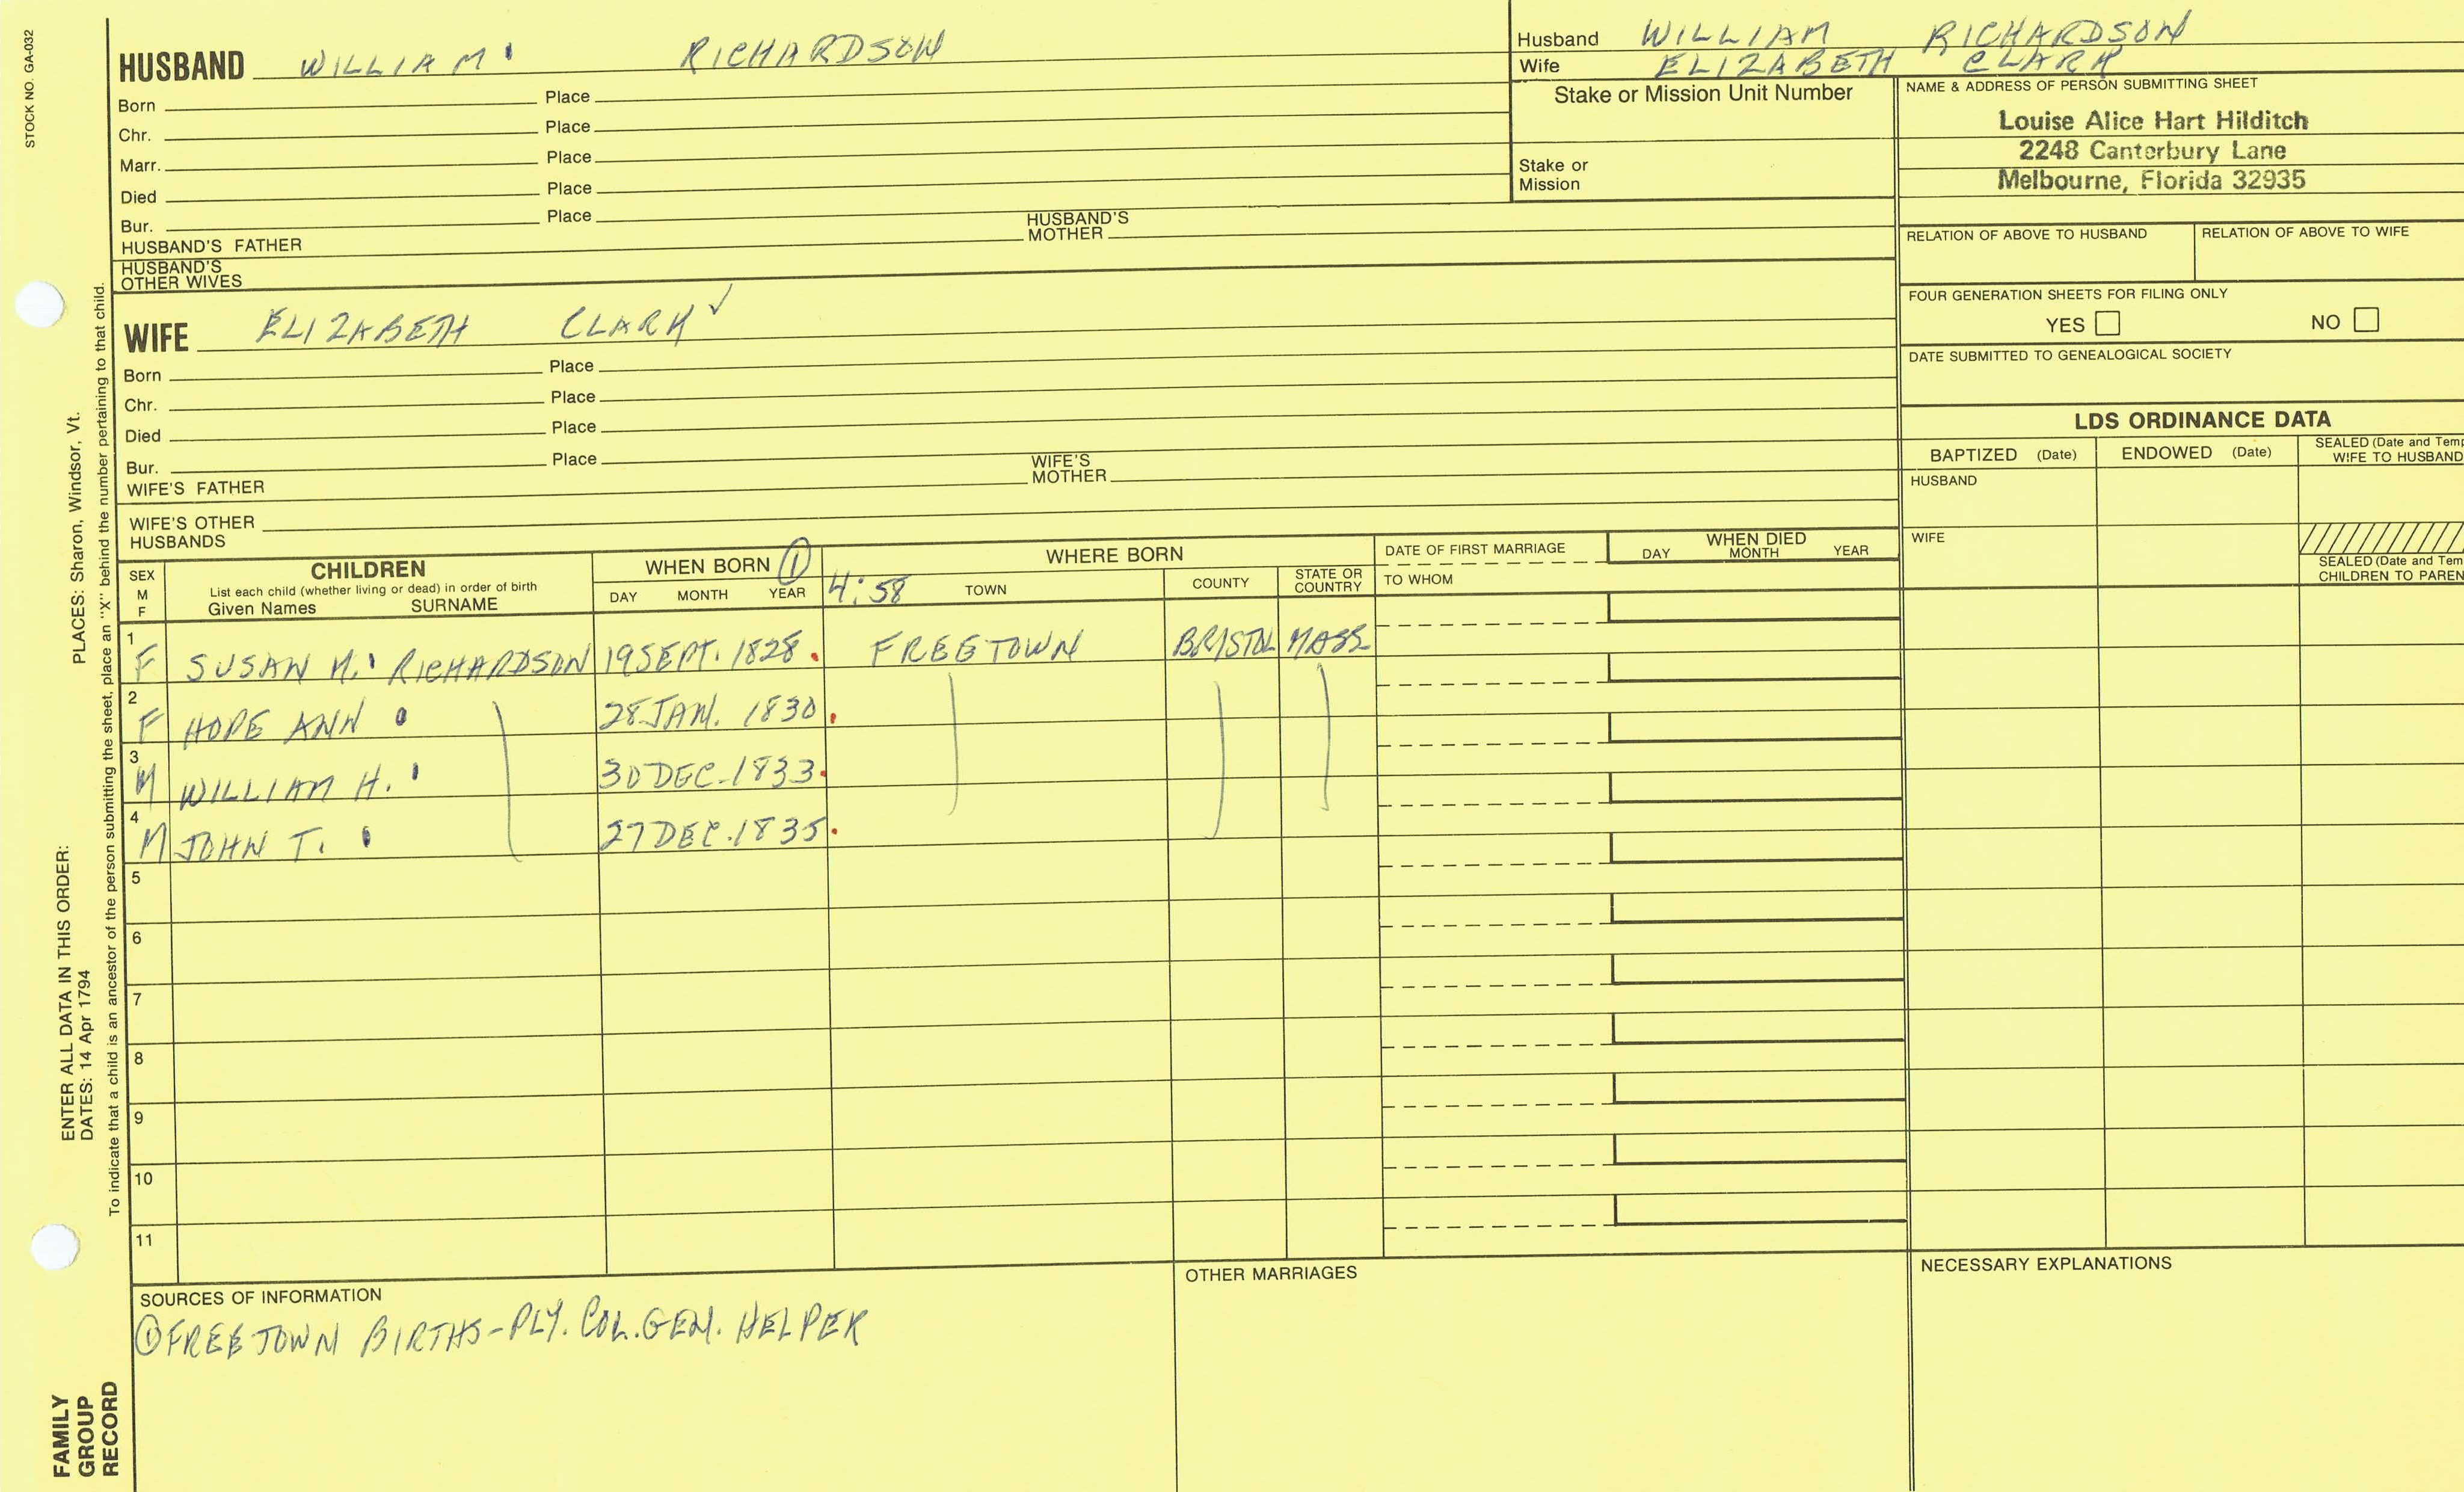 STOCK NO. GA-032
HUSBAND WILLIAM RICHARDSON
Born Place
Chr. Place
Marr. Place
Died Place
Bur. Place
HUSBAND'S FATHER HUSBAND'S MOTHER
HUSBAND'S OTHER WIVES
WIFE ELIZABETH CLARK ✓
Born Place
Chr. Place
Died Place
Bur. Place
WIFE'S FATHER WIFE'S MOTHER
WIFE'S OTHER HUSBANDS
Husband WILLIAM RICHARDSON
Wife ELIZABETH CLARK
Stake or Mission Unit Number
Stake or Mission
NAME & ADDRESS OF PERSON SUBMITTING SHEET
Louise Alice Hart Hilditch
2248 Canterbury Lane
Melbourne, Florida 32935
RELATION OF ABOVE TO HUSBAND RELATION OF ABOVE TO WIFE
FOUR GENERATION SHEETS FOR FILING ONLY
YES NO
DATE SUBMITTED TO GENEALOGICAL SOCIETY
LDS ORDINANCE DATA
BAPTIZED (Date) ENDOWED (Date) SEALED (Date and Temp
WIFE TO HUSBAND
HUSBAND
WIFE
SEALED (Date and Tem
CHILDREN TO PAREN
SEX M F
CHILDREN
List each child (whether living or dead) in order of birth
Given Names SURNAME
WHEN BORN ①
DAY MONTH YEAR
WHERE BORN
4:58 TOWN COUNTY STATE OR COUNTRY
DATE OF FIRST MARRIAGE
TO WHOM
WHEN DIED
DAY MONTH YEAR
1 F SUSAN M. RICHARDSON 19 SEPT. 1828. FREETOWN BRISTOL MASS
2 F HOPE ANN 28 JAN. 1830.
3 M WILLIAM H. 30 DEC. 1833.
4 M JOHN T. 27 DEC. 1835.
5
6
7
8
9
10
11
SOURCES OF INFORMATION
① FREETOWN BIRTHS - PLY. COL. GEN. HELPER
OTHER MARRIAGES
NECESSARY EXPLANATIONS
PLACES: Sharon, Windsor, Vt.
ENTER ALL DATA IN THIS ORDER:
DATES: 14 Apr 1794
To indicate that a child is an ancestor of the person submitting the sheet, place an "X" behind the number pertaining to that child.
FAMILY
GROUP
RECORD